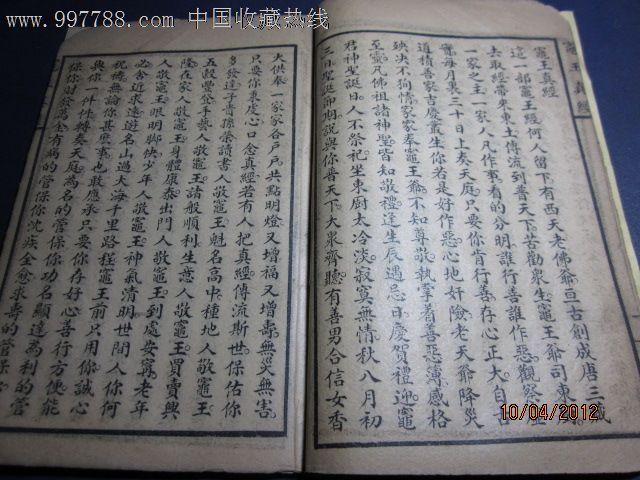 www.997788.com 中国收藏热线
竈王真經
竈王真經
這一部竈王經何人留下有西天老佛爺亘古創成唐三藏
去取經帶來東土傳流到普天下苦勸衆生竈王爺司東廚
一家之主一家人凡作事看的分明誰行善誰作惡觀察
需每月裏三十日上奏天庭只要你肯行善存心正大自古
道積善家吉慶叢生你若是好作惡心地奸險老天爺降災
殃決不狥情家家奉竈王爺不知尊敬執掌着善惡簿感格
至靈凡佛祖諸神聖皆知敬禮逢生辰遇忌日慶賀禮迎竈
君神聖誕日人不祭祀坐東厨太冷淡寂寞無情秋八月初
三日聖誕節期説與你普天下大衆齊聽有善男合信女香
大供奉一家家合戶戶共點明燈又增福又增壽無災無害
只要你專虔心口念真經若有人把真經傳流斯世保佑你
多發達子貴孫榮讀書人敬竈王魁名高中種地人敬竈王
五穀豐登手藝人敬竈王諸般順利生意人敬竈王買賣興
隆在家人敬竈王身體康泰出門人敬竈王到處安寧老年
人敬竈王眼明脚快少年人敬竈王神氣清明世間人你何
必舍近求遠遊名山過大海千里路程竈王前只用你誠心
祝禱無論你甚麼事也敢應承只要你存好心善行方便能
與你一件件轉奏天庭爲名的管保你功名顯達爲利的管
保你財發萬金有病的管保你沈疾全愈求壽的管保
10/04/2012